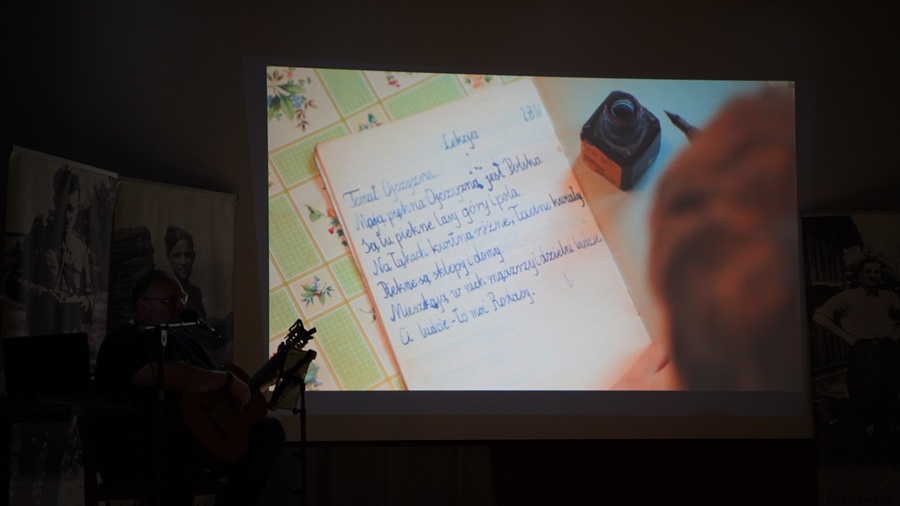 28 IV
Lekcja
Temat: Ojczyzna.
Moją piękną Ojczyzną jest Polska
Są tu piękne lasy góry i pola
Na łąkach kwitną różne, ładne kwiaty
Piękne są sklepy i domy
Mieszkają w nich mężczyzni dzielni ludzie
Ci ludzie - to moi Rodacy.